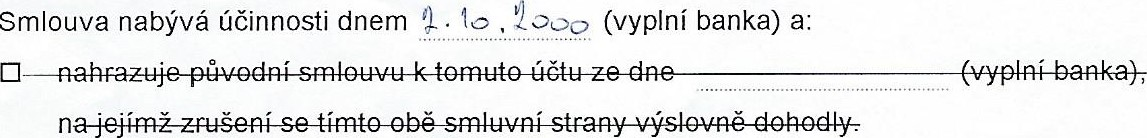 Smlouva nabývá účinnosti dnem 2.10.2000 (vyplní banka) a:
☐ nahrazuje původní smlouvu k tomuto účtu ze dne (vyplní banka),
na jejímž zrušení se tímto obě smluvní strany výslovně dohodly.